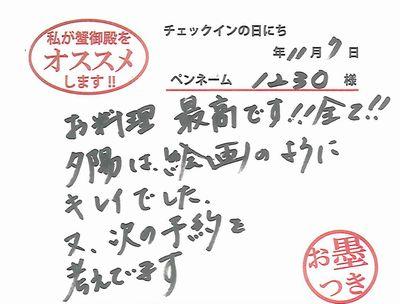 私が蟹御殿を
オススメ
します!!
チェックインの日にち
年11月7日
ペンネーム 1230 様
お料理 最高です!!全て!!
夕陽は、絵画のように
キレイでした。
又、次の予約を
考えてます
お墨
つき